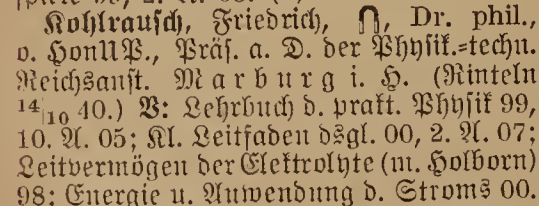 Kohlrausch, Friedrich, ⋂, Dr. phil.,
o. HonUP., Präs. a. D. der Physik.=techn.
Reichsanst. Marburg i. H. (Rinteln
14/10 40.) V: Lehrbuch d. prakt. Physik 99,
10. A. 05; Kl. Leitfaden dsgl. 00, 2. A. 07;
Leitvermögen der Elektrolyte (m. Holborn)
98; Energie u. Anwendung d. Stroms 00.